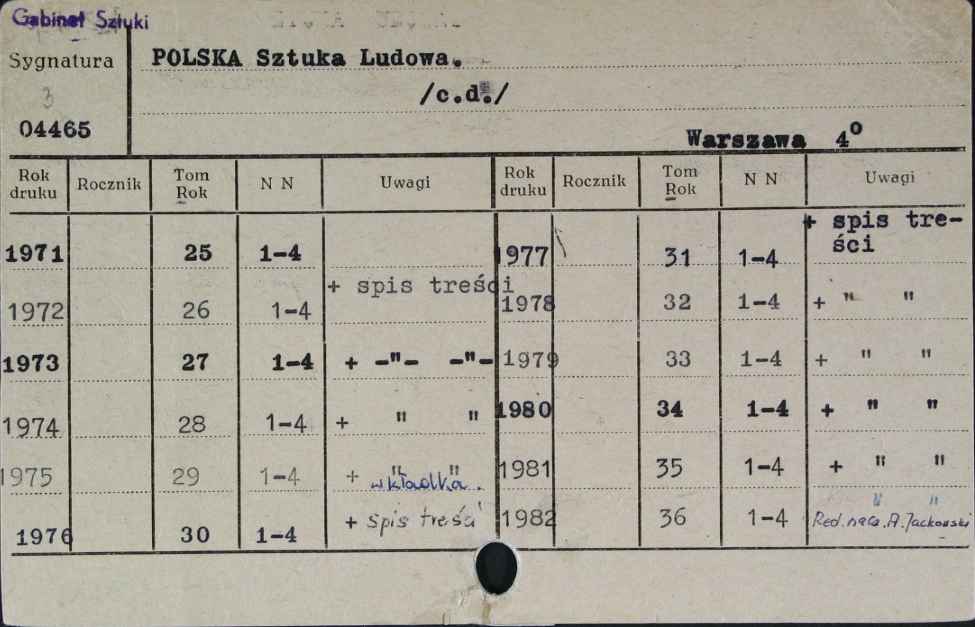 Gabinet Sztuki
Sygnatura
3
04465
POLSKA Sztuka Ludowa.
/c.d./
Warszawa 4°
Rok druku Rocznik Tom Rok N N Uwagi Rok druku Rocznik Tom Rok N N Uwagi
1971 25 1-4
1972 26 1-4 + spis treści
1973 27 1-4 + -"- -"-
1974 28 1-4 + " "
1975 29 1-4 + " "
wkładka.
1976 30 1-4 + spis treści
1977 31 1-4 + spis tre-
ści
1978 32 1-4 + " "
1979 33 1-4 + " "
1980 34 1-4 + " "
1981 35 1-4 + " "
1982 36 1-4 " "
Red. nacz. A. Jackowski